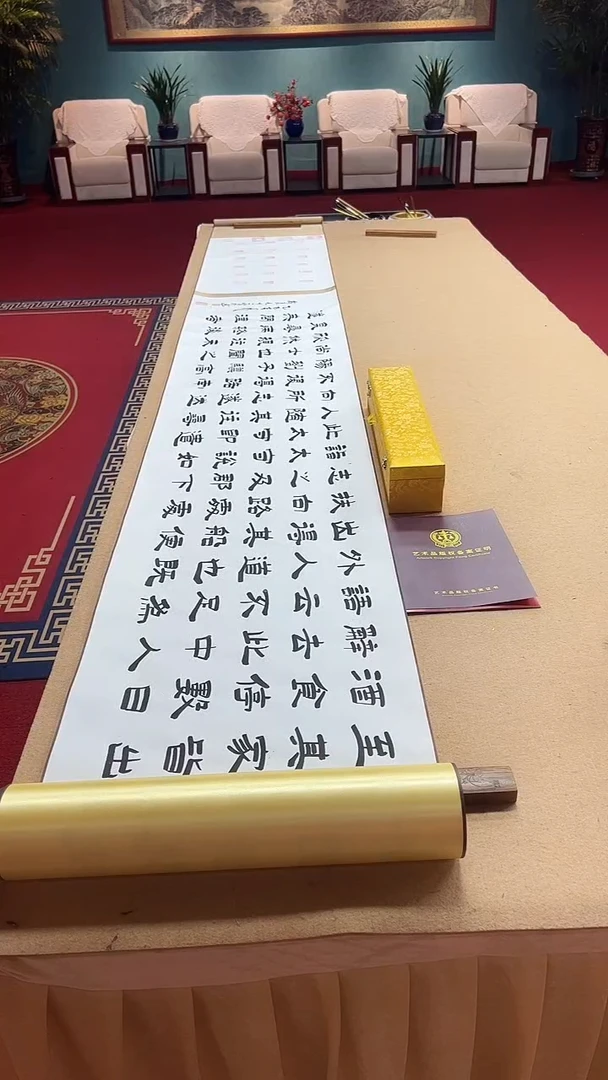 至其家皆出
酒食停數日
辭去此中人
語云不足為
外人道也既
出得其船便
扶向路處處
誌之及郡下
詣太守說如
此太守即遣
人隨其往尋
向所誌遂迷
不復得路南
陽劉子驥高
尚士也聞之
欣然規往未
艺术品版权备案证明